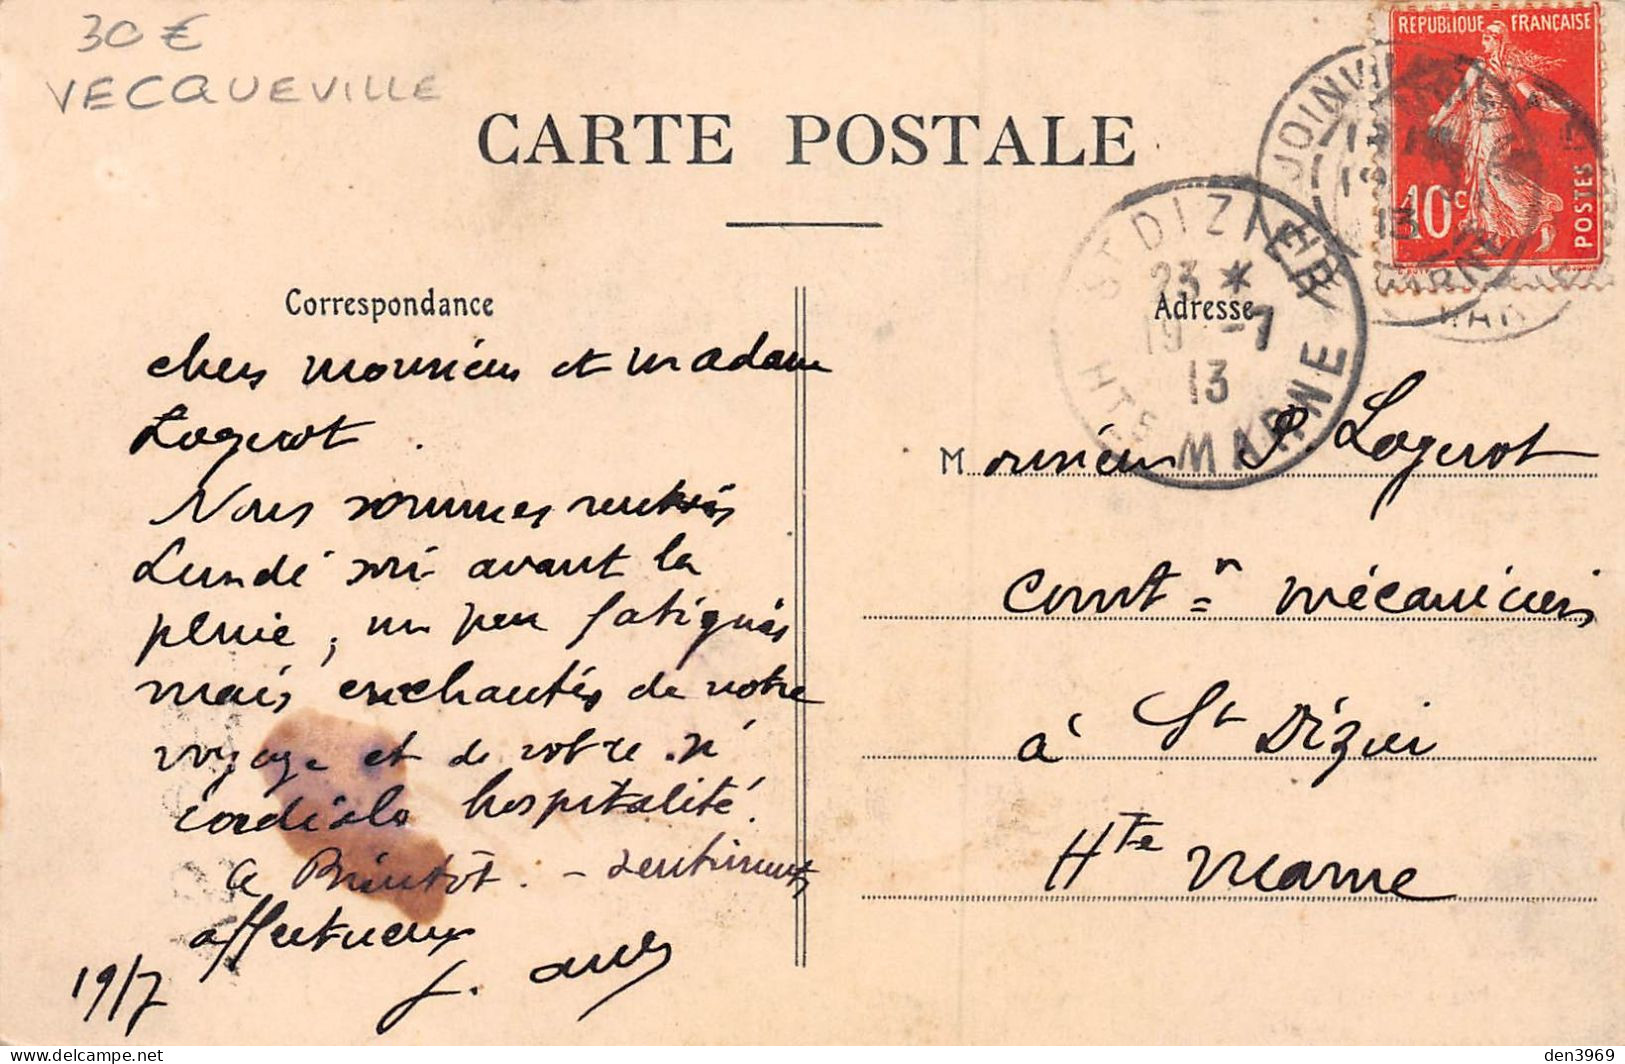 30 €
VECQUEVILLE
CARTE POSTALE
REPUBLIQUE FRANÇAISE
10c
POSTES
JOINVILLE
13
ST DIZIER
23 *
19 -7
13
HTE MARNE
Correspondance
Adresse
chers monsieur et madame
Logerot.
Nous sommes rentrés
Lundi soir avant la
pluie, un peu fatigués
mais enchantés de notre
voyage et de votre si
cordiale hospitalité.
a Bientôt. - sentiments
affectueux
19/7
Monsieur P. Logerot
Const.n mécanicien
à St Dizier
Hte Marne
den3969